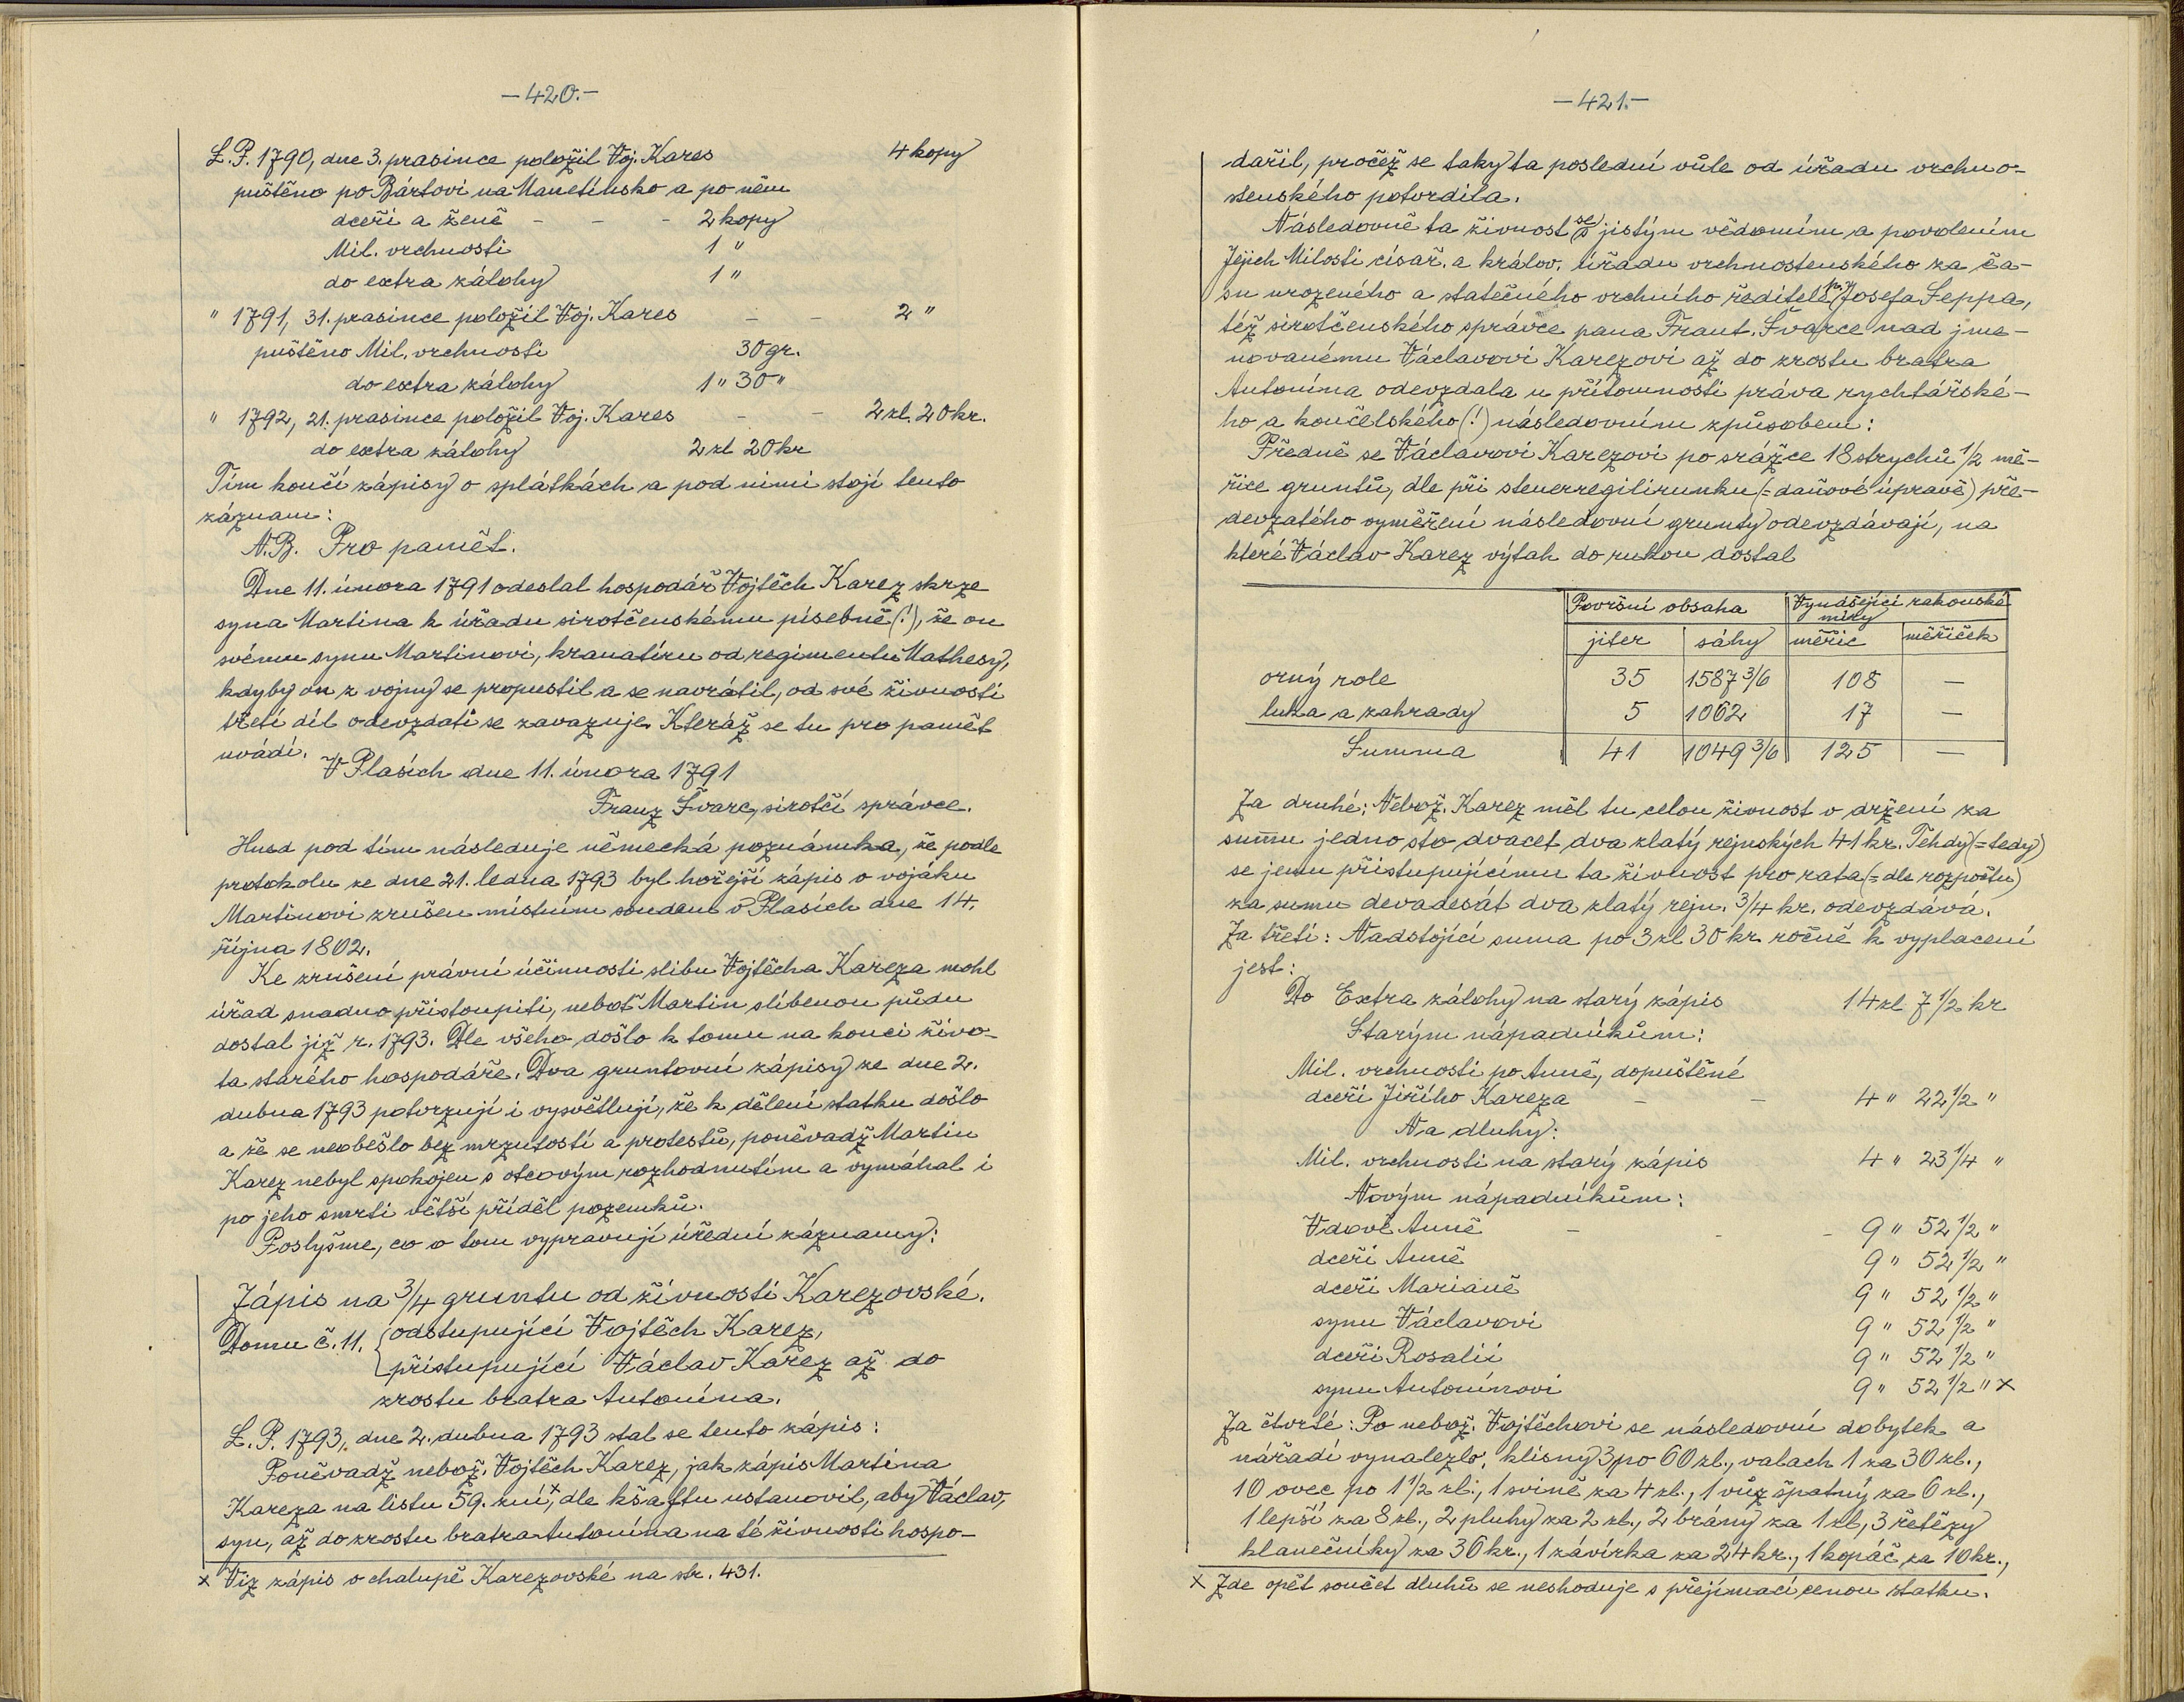 -420.-
L.P. 1790, dne 3. prasince položil Voj. Kares 4 kopy
puštěno po Bártovi na Manetínsko a po něm
dceři a ženě - - - 2 kopy
Mil. vrchnosti 1 "
do extra zálohy 1 "
" 1791, 31. prasince položil Voj. Kares - - 2 "
puštěno Mil. vrchnosti 30 gr.
do extra zálohy 1 " 30 "
" 1792, 21. prasince položil Voj. Kares - - 2 zl. 20 kr.
do extra zálohy 2 zl 20 kr
Tím končí zápisy o splátkách a pod nimi stojí tento
záznam:
N.B. Pro pamět.
Dne 11. února 1791 odeslal hospodář Vojtěch Karez skrze
syna Martina k úřadu sirotčenskému písebně (!), že on
svému synu Martinovi, kranatíru od regimentu Mathesy,
kdyby on z vojny se propustil a se navrátil, od své živnosti
třetí díl odevzdati se zavazuje. Kteráž se tu pro pamět
uvádí.
V Plasích dne 11. února 1791
Franz Švarc, sirotčí správce.
Hned pod tím následuje německá poznámka, že podle
protokolu ze dne 21. ledna 1793 byl hořejší zápis o vojáku
Martinovi zrušen místním soudem v Plasích dne 14.
října 1802.
Ke zrušení právní účinnosti slibu Vojtěcha Kareza mohl
úřad snadno přistoupiti, neboť Martin slíbenou půdu
dostal již r. 1793. Dle všeho došlo k tomu na konci živo-
ta starého hospodáře. Dva gruntovní zápisy ze dne 2.
dubna 1793 potvrzují i vysvětlují, že k dělení statku došlo
a že se neobešlo bez mrzutostí a protestů, poněvadž Martin
Karez nebyl spokojen s otcovým rozhodnutím a vymáhal i
po jeho smrti větší příděl pozemků.
Poslyšme, co o tom vypravují úřední záznamy:
Zápis na 3/4 gruntu od živnosti Karezovské.
Domu č. 11. { odstupující Vojtěch Karez,
přistupující Václav Karez až do
zrostu bratra Antonína.
L.P. 1793, dne 2. dubna 1793 stal se tento zápis:
Poněvadž nebož. Vojtěch Karez, jak zápis Martina
Kareza na listu 59. zní,x dle kšaftu ustanovil, aby Václav,
syn, až do zrostu bratra Antonína na té živnosti hospo-
x Viz zápis o chalupě Karezovské na str. 431.
-421.-
dařil, pročež se taky ta poslední vůle od úřadu vrchno-
stenského potvrdila.
Následovně ta živnost (se) s jistým vědomím a povolením
Jejich Milosti císař. a králov. úřadu vrchnostenského za ča-
su urozeného a statečného vrchního ředitele p. Josefa Seppa,
též sirotčenského správce pana Frant. Švarce nad jme-
novanému Václavovi Karezovi až do zrostu bratra
Antonína odevzdala u přítomnosti práva rychtářské-
ho a končelského (!) následovním způsobem:
Předně se Václavovi Karezovi po srážce 18 strychů 1/2 mě-
řice gruntů, dle při steuerregilirunku (= daňové úpravě) pře-
devzatého vyměření následovní grunty odevzdávají, na
které Václav Karez výtah do rukou dostal
Površní obsaha Vynášející rakouské
míry
jiter sáhy měřic měřiček
orný role 35 1587 3/6 108 —
luka a zahrady 5 1062 17 —
Summa 41 1049 3/6 125 —
Za druhé: Nebož. Karez měl tu celou živnost v držení za
sumu jedno sto dvacet dva zlatý rejnských 41 kr. Téhdy (= tedy)
se jemu přistupujícímu ta živnost pro rata (= dle rozpočtu)
za sumu devadesát dva zlatý rejn. 3/4 kr. odevzdává.
Za třetí: Nadstojící suma po 3 zl 30 kr ročně k vyplacení
jest:
Do Extra zálohy na starý zápis 14 zl 7 1/2 kr
Starým nápadníkům:
Mil. vrchnosti po Anně, dopuštěné
dceři Jiřího Kareza - - 4 " 22 1/2 "
Na dluhy:
Mil. vrchnosti na starý zápis 4 " 23 1/4 "
Novým nápadníkům:
Vdově Anně - - - 9 " 52 1/2 "
dceři Anně 9 " 52 1/2 "
dceři Marianě 9 " 52 1/2 "
synu Václavovi 9 " 52 1/2 "
dceři Rosalii 9 " 52 1/2 "
synu Antonínovi 9 " 52 1/2 " x
Za čtvrté: Po nebož. Vojtěchovi se následovní dobytek a
nářadí vynalezlo: klisny 3 po 60 zl., valach 1 za 30 zl.,
10 ovec po 1 1/2 zl., 1 svině za 4 zl., 1 vůz špatný za 6 zl.,
1 lepší za 8 zl., 2 pluhy za 2 zl., 2 brány za 1 zl, 3 řetězy
klanečníky za 36 kr., 1 závírka za 24 kr., 1 kopáč za 10 kr.,
x Zde opět součet dluhů se neshoduje s přejímací cenou statku.